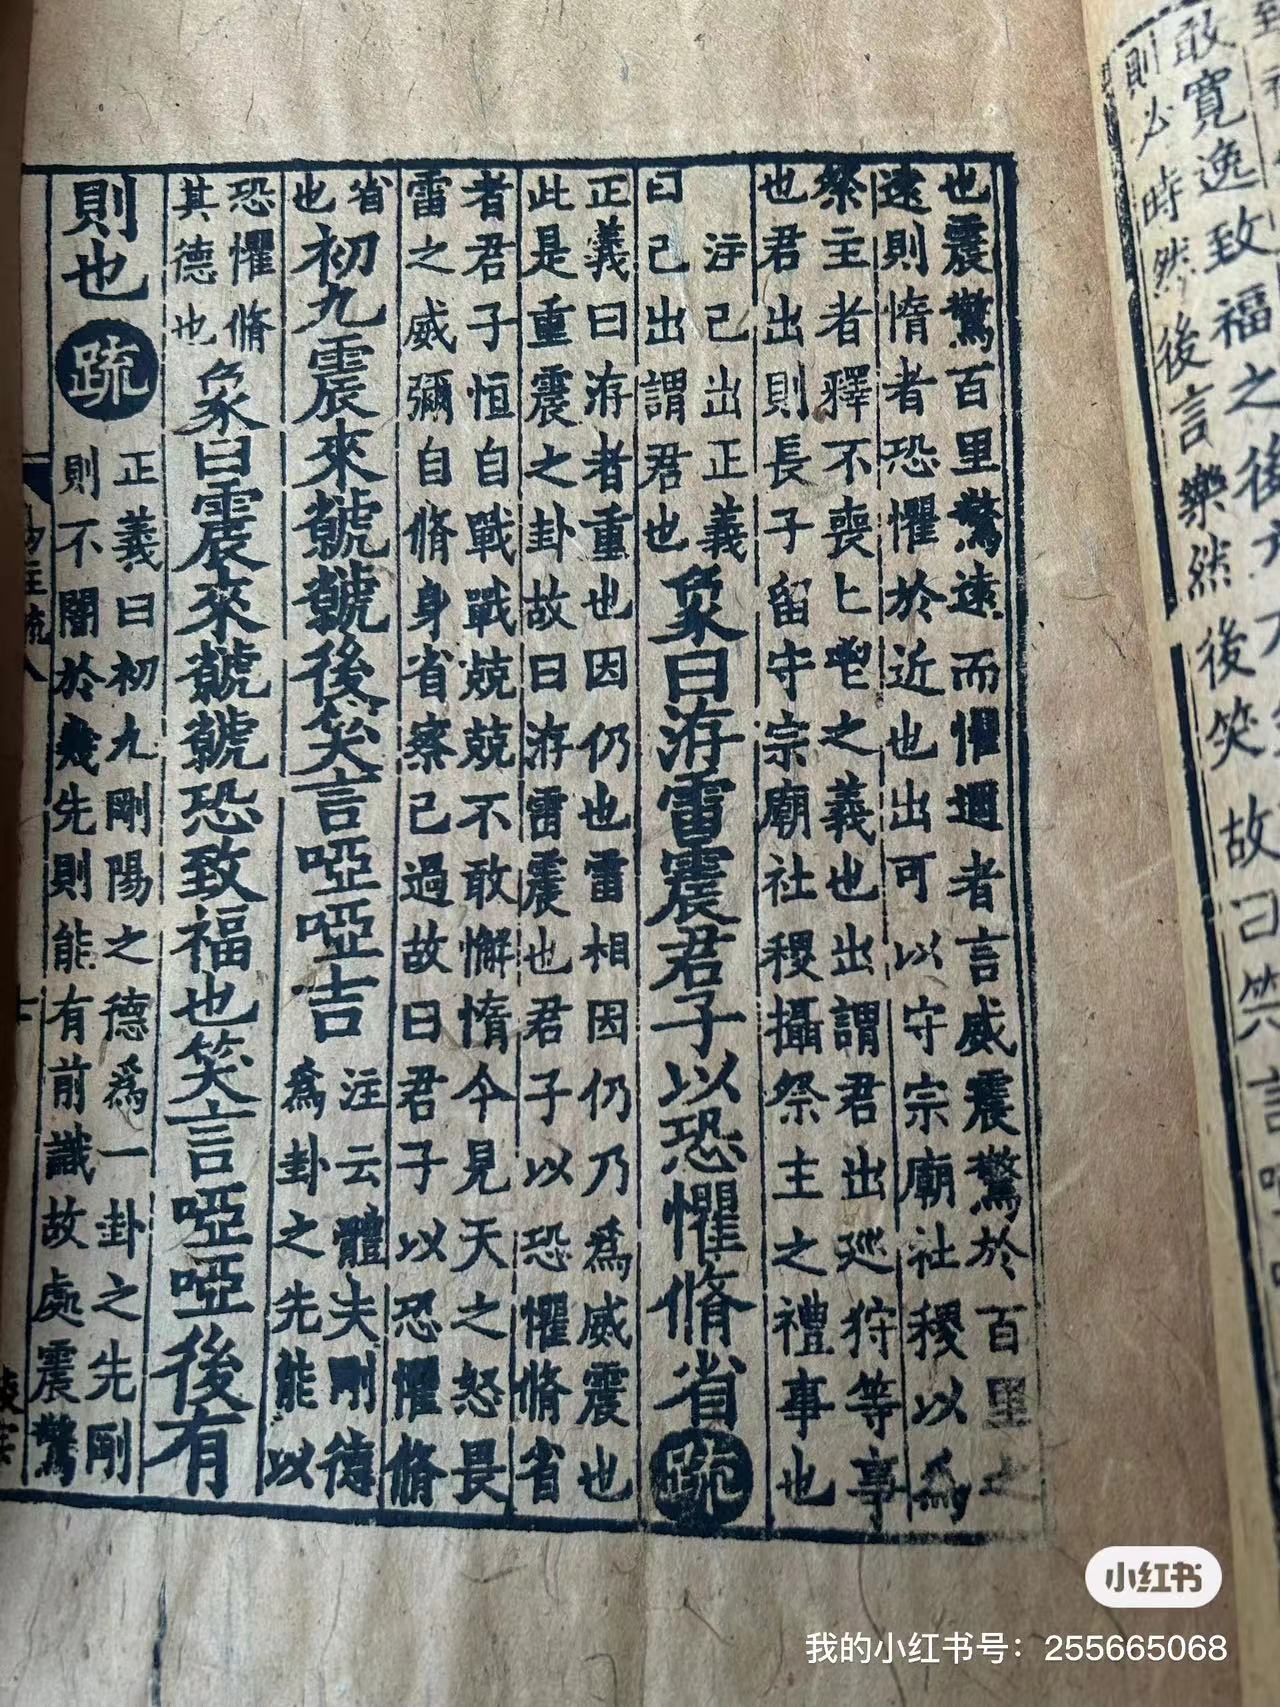 敢寬逸致福之後方不
則必時然後言樂然後笑故曰笑言
也震驚百里驚遠而懼邇者言威震驚於百里之
遠則惰者恐懼於近也出可以守宗廟社稷以爲
祭主者釋不喪匕鬯之義也出謂君出巡狩等事
也君出則長子留守宗廟社稷攝祭主之禮事也
注已出正義
曰已出謂君也
象曰洊雷震君子以恐懼脩省疏
正義曰洊者重也因仍也雷相因仍乃爲威震也
此是重震之卦故曰洊雷震也君子以恐懼脩省
者君子恒自戰戰兢兢不敢懈惰今見天之怒畏
雷之威彌自脩身省察己過故曰君子以恐懼脩
省
也
初九震來虩虩後笑言啞啞吉
注云體夫剛德
爲卦之先能以
恐懼脩
其德也
象曰震來虩虩恐致福也笑言啞啞後有
則也疏
正義曰初九剛陽之德爲一卦之先剛
則不闇於幾先則能有前識故處震驚
小红书
我的小红书号：255665068